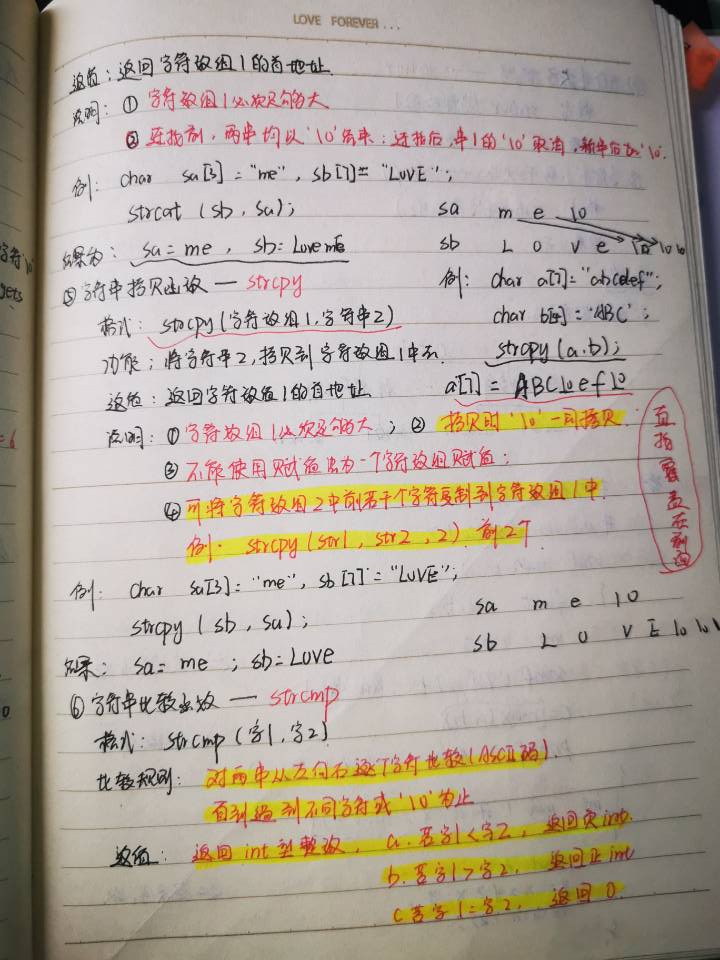 LOVE FOREVER...
返值：返回字符数组1的首地址
说明：① 字符数组1必须足够大
② 连接前，两串均以'\0'结束；连接后，串1的'\0'取消，新串后加'\0'.
例： char sa[3]="me", sb[7]="LOVE";
strcat (sb, sa);
sa m e \0
结果为： sa=me, sb=Loveme
sb L O V e
⑤ 字符串拷贝函数 — strcpy
例： char a[7]="abcdef";
格式：strcpy(字符数组1,字符串2)
char b[4]='ABC';
功能：将字符串2,拷贝到字符数组1中去
strcpy(a.b);
返值：返回字符数组1的首地址
a[7]= ABC\0ef\0
说明：①字符数组1必须足够大；② 拷贝时'\0'一同拷贝.
③ 不能使用赋值为一个字符数组赋值；
④ 可将字符数组2中前若干个字符复制到字符数组1中.
例. strcpy(str1, str2, 2) 前2个
直接覆盖不删
例： char sa[3]="me", sb[7]="LOVE";
sa m e \0
strcpy (sb, sa);
sb L O V E \0 \0 \0
结果： sa=me ; sb=Love
⑥ 字符串比较函数 — strcmp
格式： strcmp (字1.字2)
比较规则： 对两串从左向右逐个字符比较(ASCII码).
直到遇到不同字符或'\0'为止
返值： 返回int型整数, a.若字1<字2, 返回负int.
b.若字1>字2, 返回正int
c若字1=字2, 返回0.
字符'\0'
gets
=6